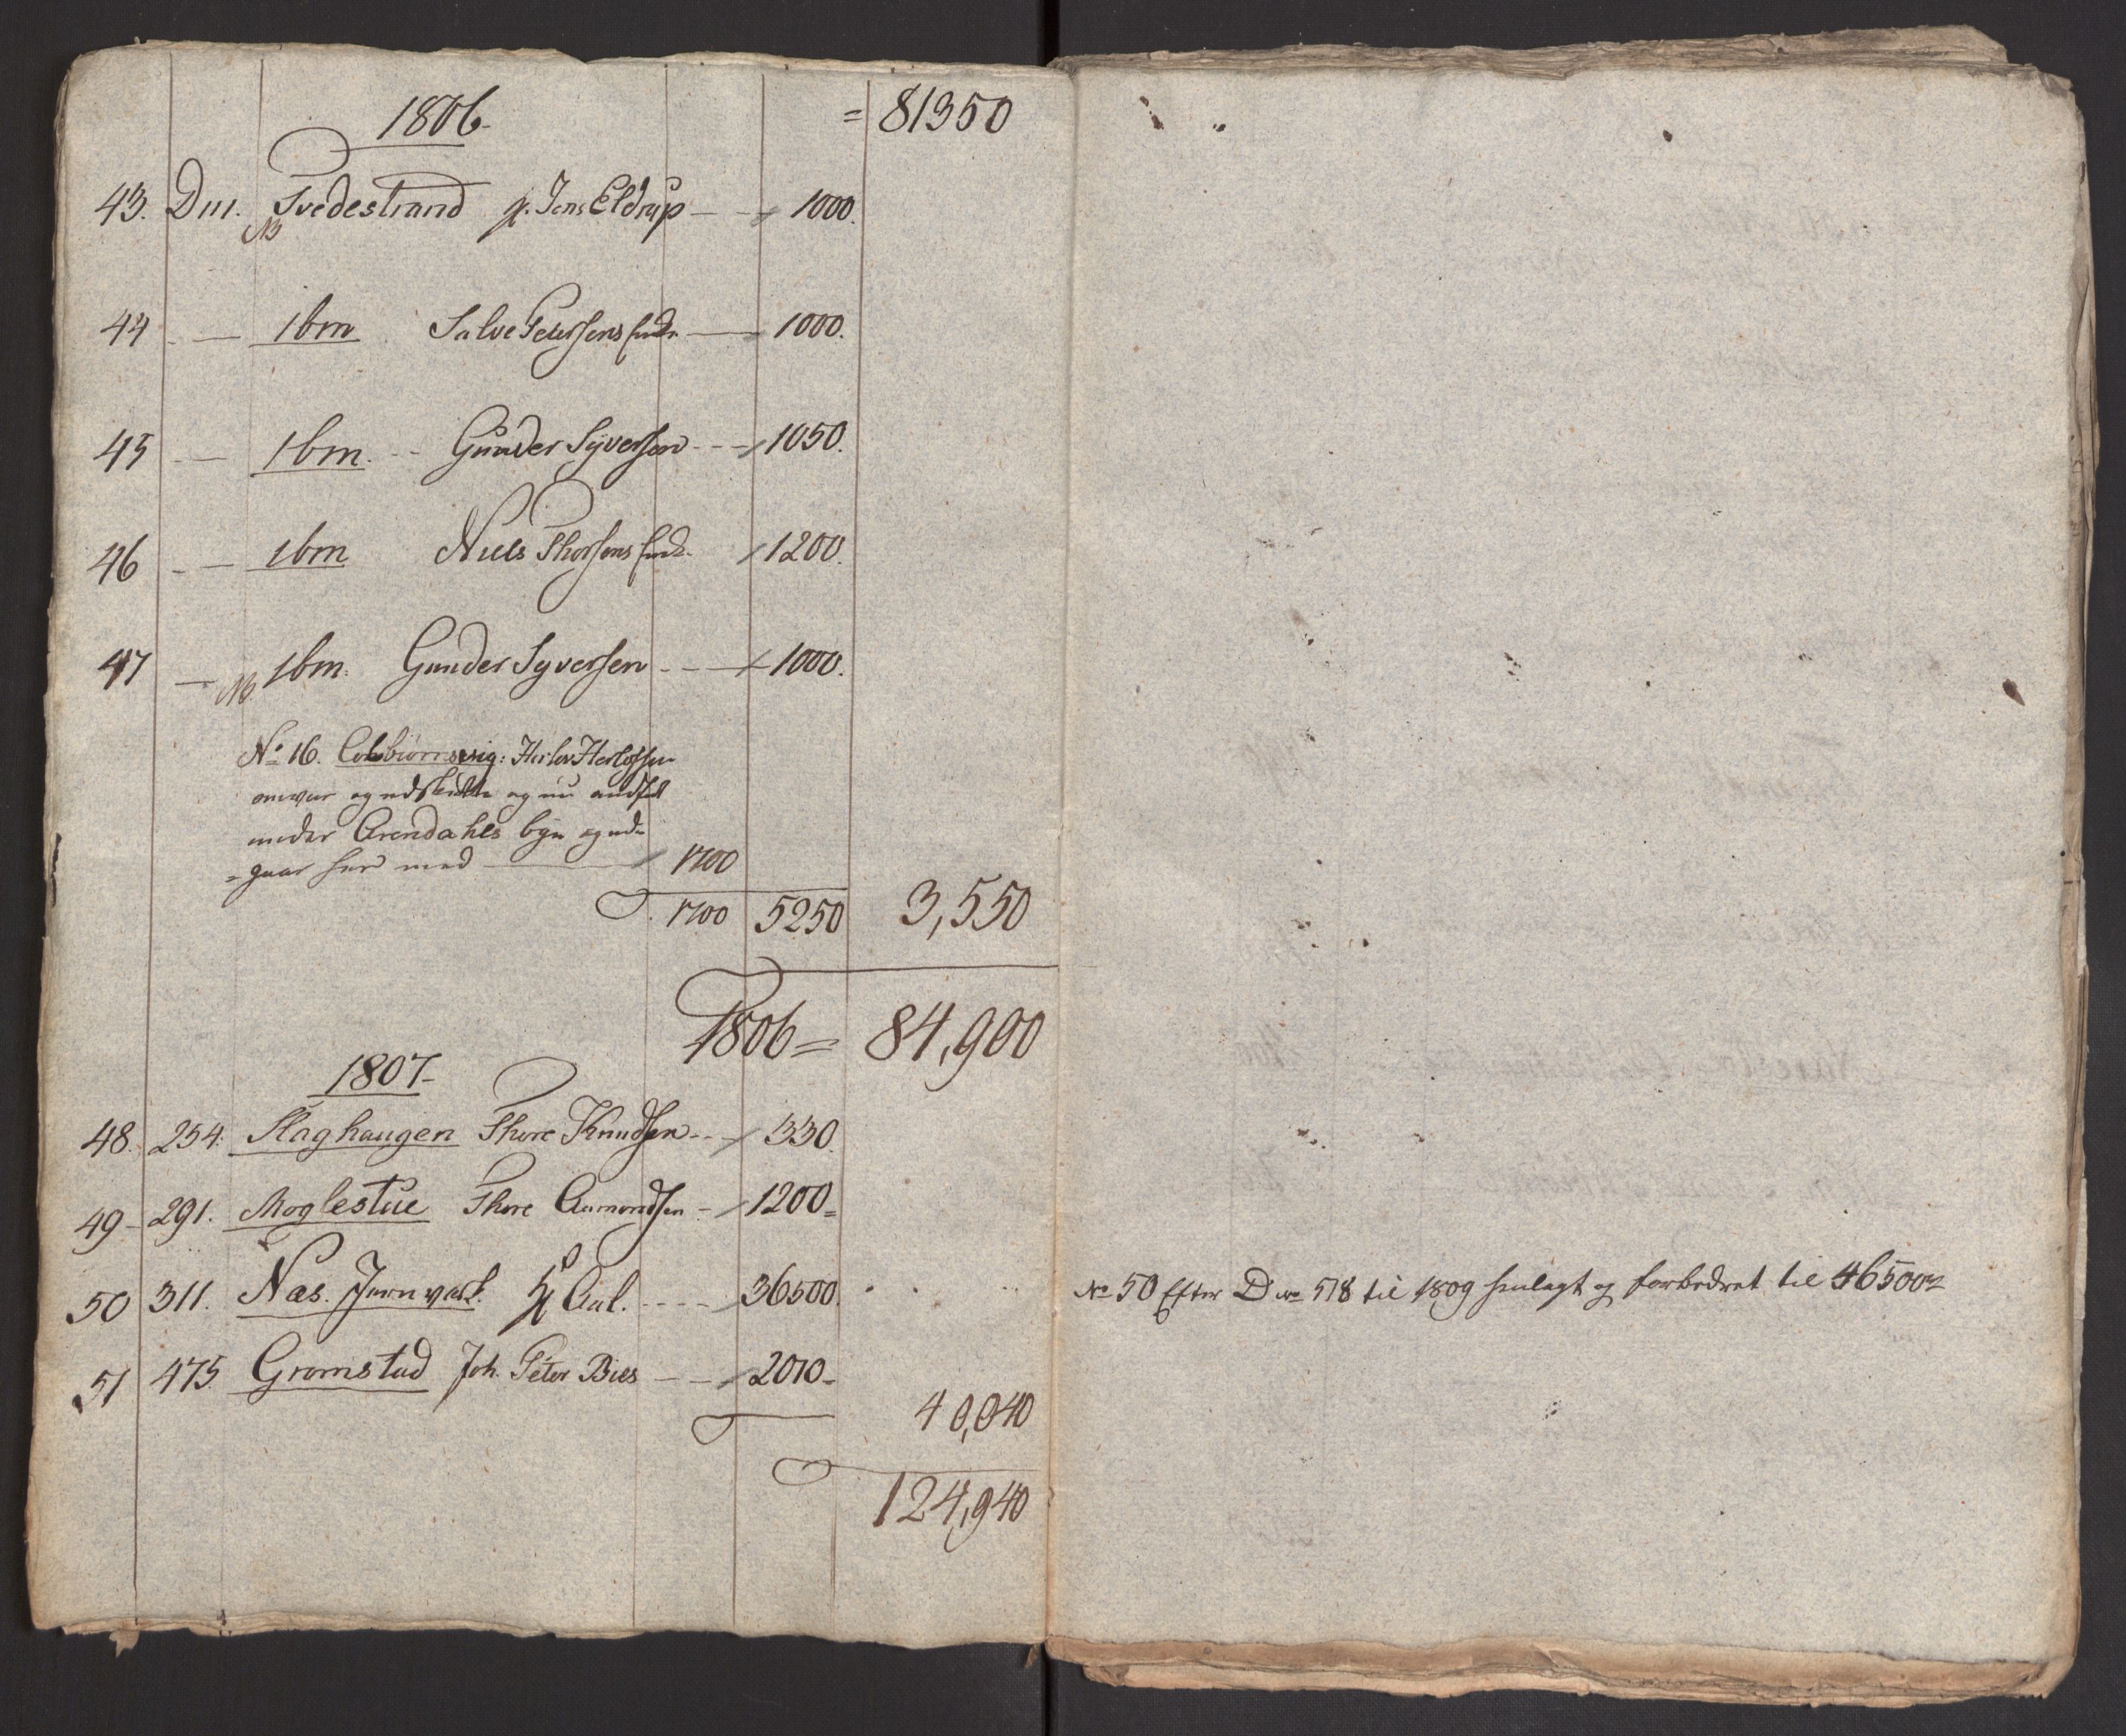 1806. = 81350
43. Dm. Tvedestrand p. Jens Eldrup - - 1000.
NB
44 - - Ibm Salve Petersens Enke - 1000.
45 - - Ibm. - - Gunder Syversen - - 1050.
46 - - Ibm Niels Thorsens Enke. 1200.
47 - NB Ibm. Gunder Syversen - - 1000.
No 16. Colbiørnsvig: Herlov Herlofsen
og udskildte og nu
under Arendahls bye og ud-
= gaar her med - 1700
1700 5250 3,550
1806 = 84,900
1807-
48. 254. Slaghaugen Thore Knudsen - - 330.
49 - 291. Moglestue Thore Aamondsen - 1200 =
50 311. Næs. Jernverk. H Aal. - - - - 36500.
51 475. Gromstad Joh. Peter Bies - - 2010 -
40,040
124,940
No 50 Efter D No 518 til 1809 henlagt og forbedret til 46500